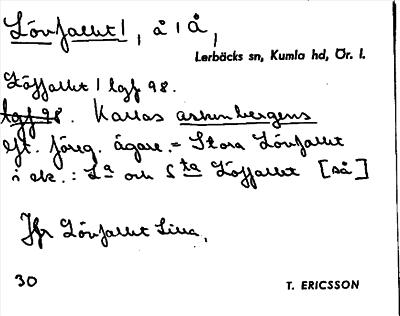 Lövfallet 1, å 1 Å,
Lerbäcks sn, Kumla hd, Ör. l.
Löffallet 1 lgf 98.
lgf 98. Kallas
eft. föreg. ägare. = Stora Lövfallet
i ek.: La och Sta Löffallet [så]
Jfr Lövfallet Lilla.
30
T. ERICSSON